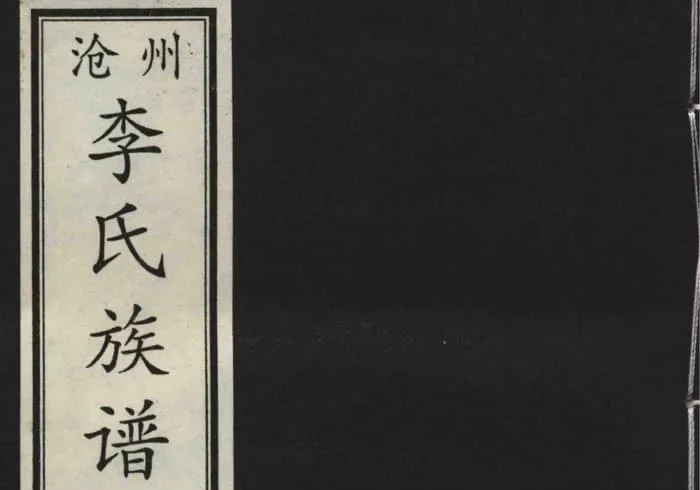 沧州
李氏族谱